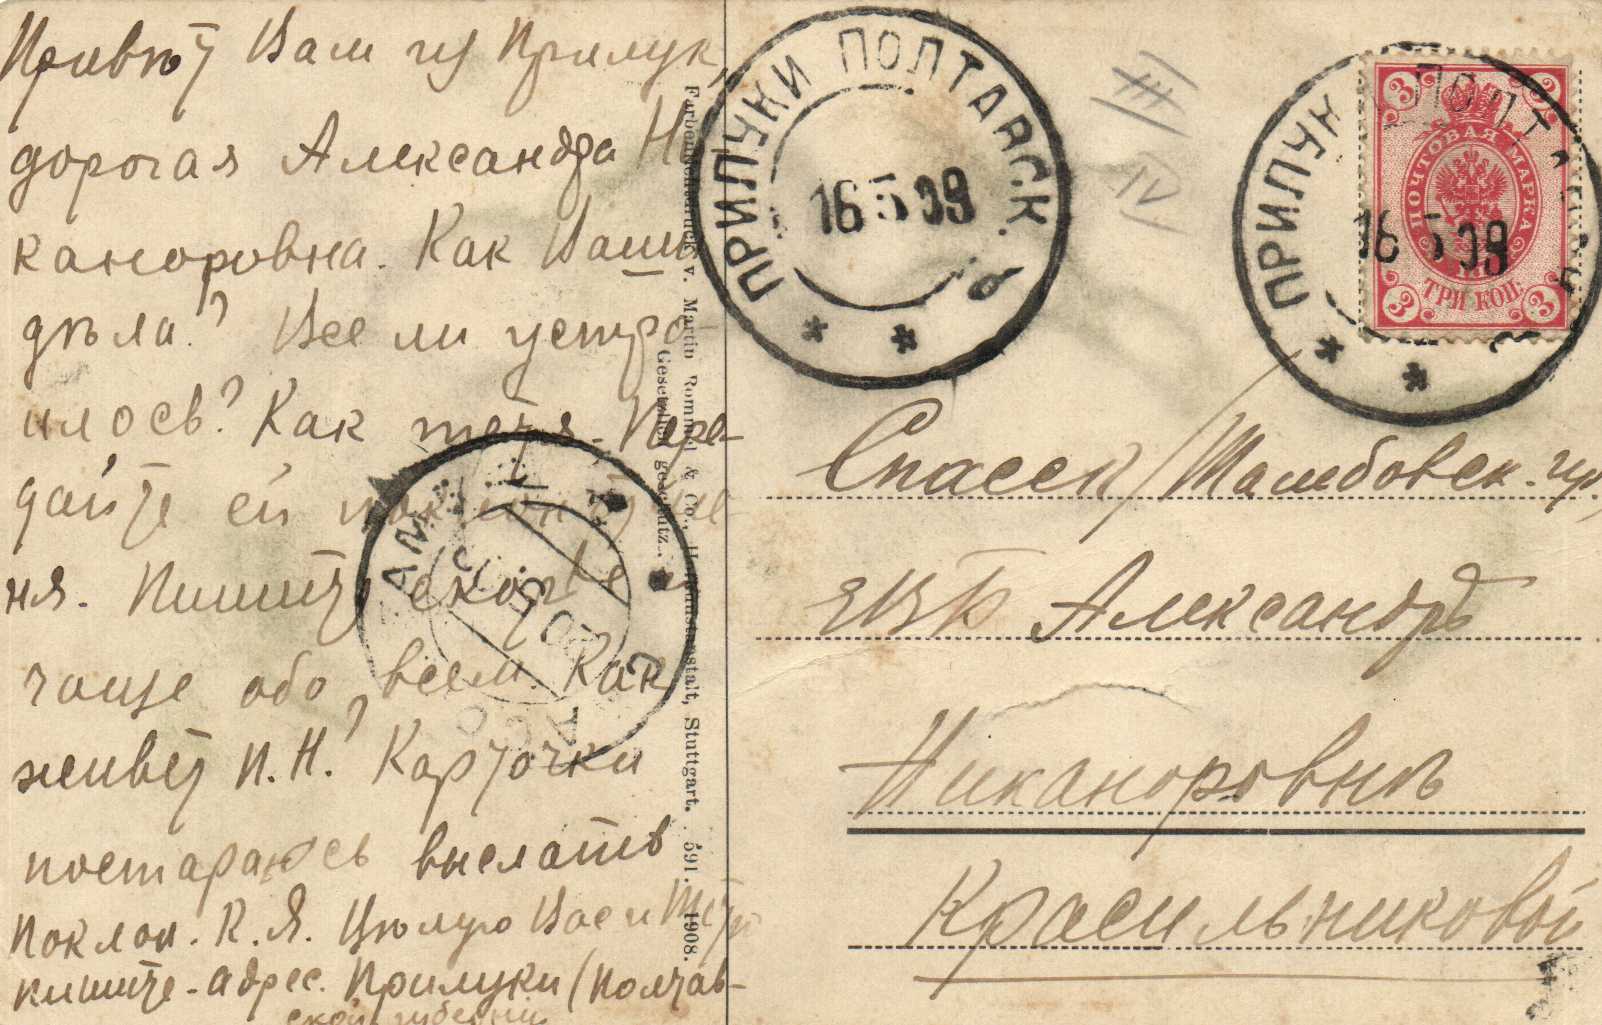 Привѣт Вам из Прилук,
дорогая Александра Ни-
каноровна. Как Ваши
дѣла? Все ли устро-
илось? Как тетя. Пере-
дайте ей поклон от ме-
ня. Пишите скорѣе и
чаще обо всем. Как
живет П. Н.? Карточки
постараюсь выслать
Поклон. К. Я. Цѣлую Вас и
пишите - адрес. Прилуки (Полтав-
ской губернии
Farbenlichtdruck v. Martin Rommel & Co., Hofkunstanstalt, Stuttgart. 591. 1908.
Gesetzlich geschützt.
ПРИЛУКИ ПОЛТАВСК.
16 5 09
ПРИЛУКИ ПОЛТАВСК
16 5 09
ПОЧТОВАЯ МАРКА
3 3
3 3
ТРИ КОП.
III
IV
Спасск / Тамбовск. гу.
ЕВБ Александрѣ
Никаноровнѣ
Красильниковой